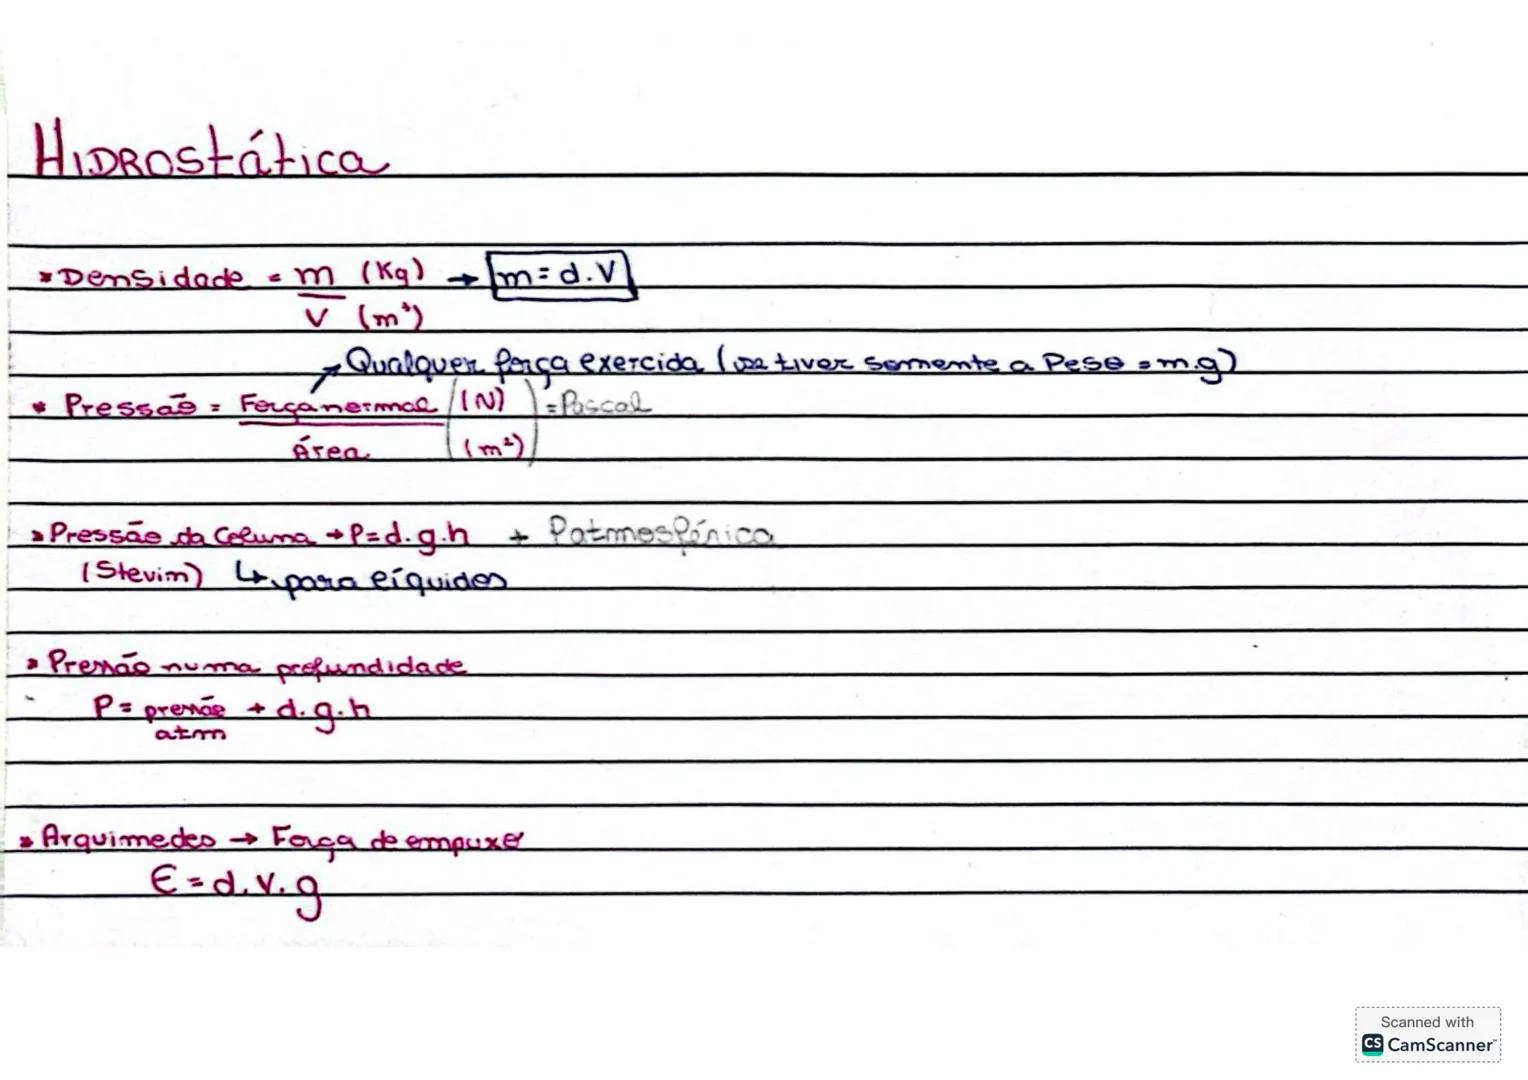 HIDROStática
* Densidade = m (Kg) → m = d.V
V (m³)
↗ Qualquer força exercida (se tiver somente a Peso = m.g)
* Pressão = Força normal (N) = Pascal
Área (m²)
* Pressão da Coluna → P = d.g.h + Patmosférica
(Stevim) ↳ para líquidos
* Pressão numa profundidade
P = pressão + d.g.h
atm
* Arquimedes → Força de empuxo
E = d.V.g
Scanned with
CS CamScanner